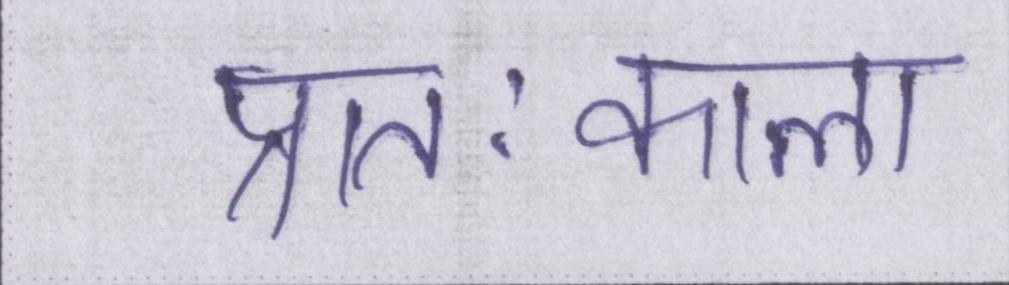 प्रातःकाला